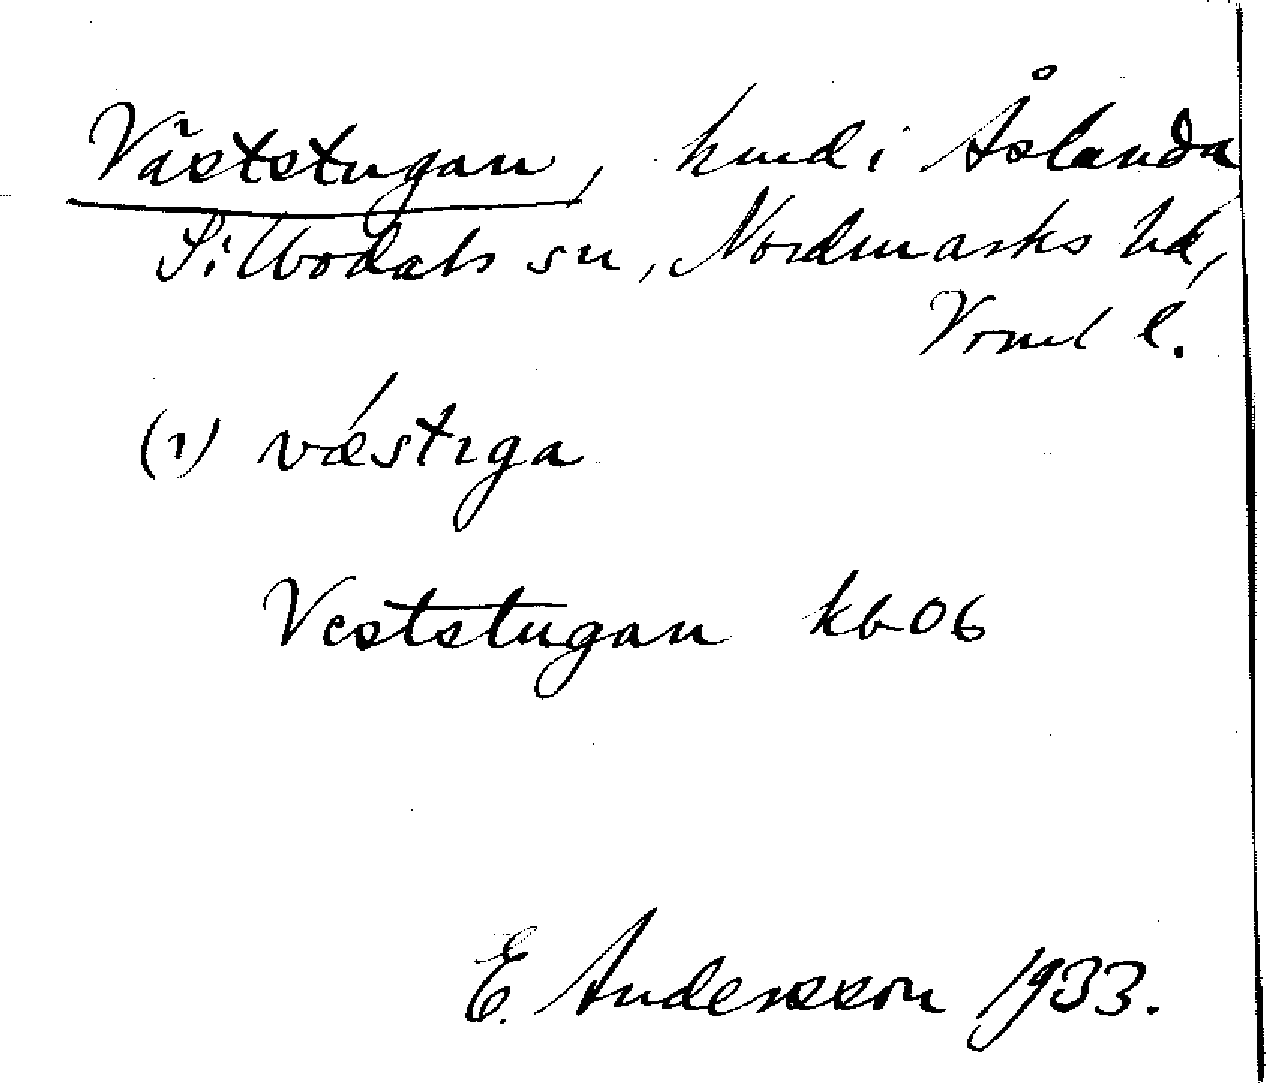 Väststugan, hmd i Åslanda
Silbodals sn, Nordmarks hd,
Vrml l.
(1) vǽstɩga
Veststugan kb 06
E. Andersson 1933.